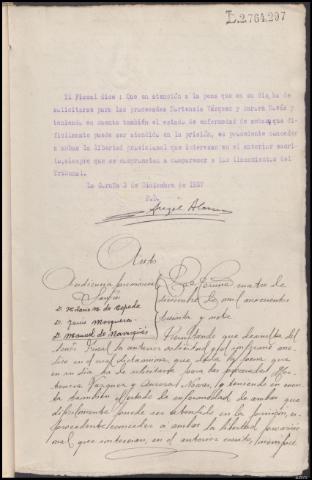 L.2.764.297
El Fiscal dice : Que en atención a la pena que en su dia, ha de
solicitarse para las procesadas Hortensia Vázquez y Aurora
teniendo en cuenta también el estado de enfermedad de ambas, que di-
ficilmente puede ser atendida en la prisión, es procedente conceder
a ambas la libertad provisional que interesan en el anterior escri-
to, siempre que se comprometan a comparecer a los llamamientos del
Tribunal.
La Coruña 3 de Diciembre de 1937
Angel
Auto
Audiencia provincial
Señores
D. de Cepeda
D. Jesús Mosquera
D. Manuel de
La Coruña cuatro de
diciembre de mil novecientos
treinta y siete
Resultando que
Fiscal la anterior solicitud
en el cual que, dada la pena que
en su dia ha de solicitarse para las procesadas Hor-
tensia Vázquez y Aurora y teniendo en cuen-
ta también el estado de enfermedad de ambas que
dificilmente puede ser atendido en la prisión, es
procedente conceder a ambas la libertad provisio-
nal que interesan, en el anterior escrito,